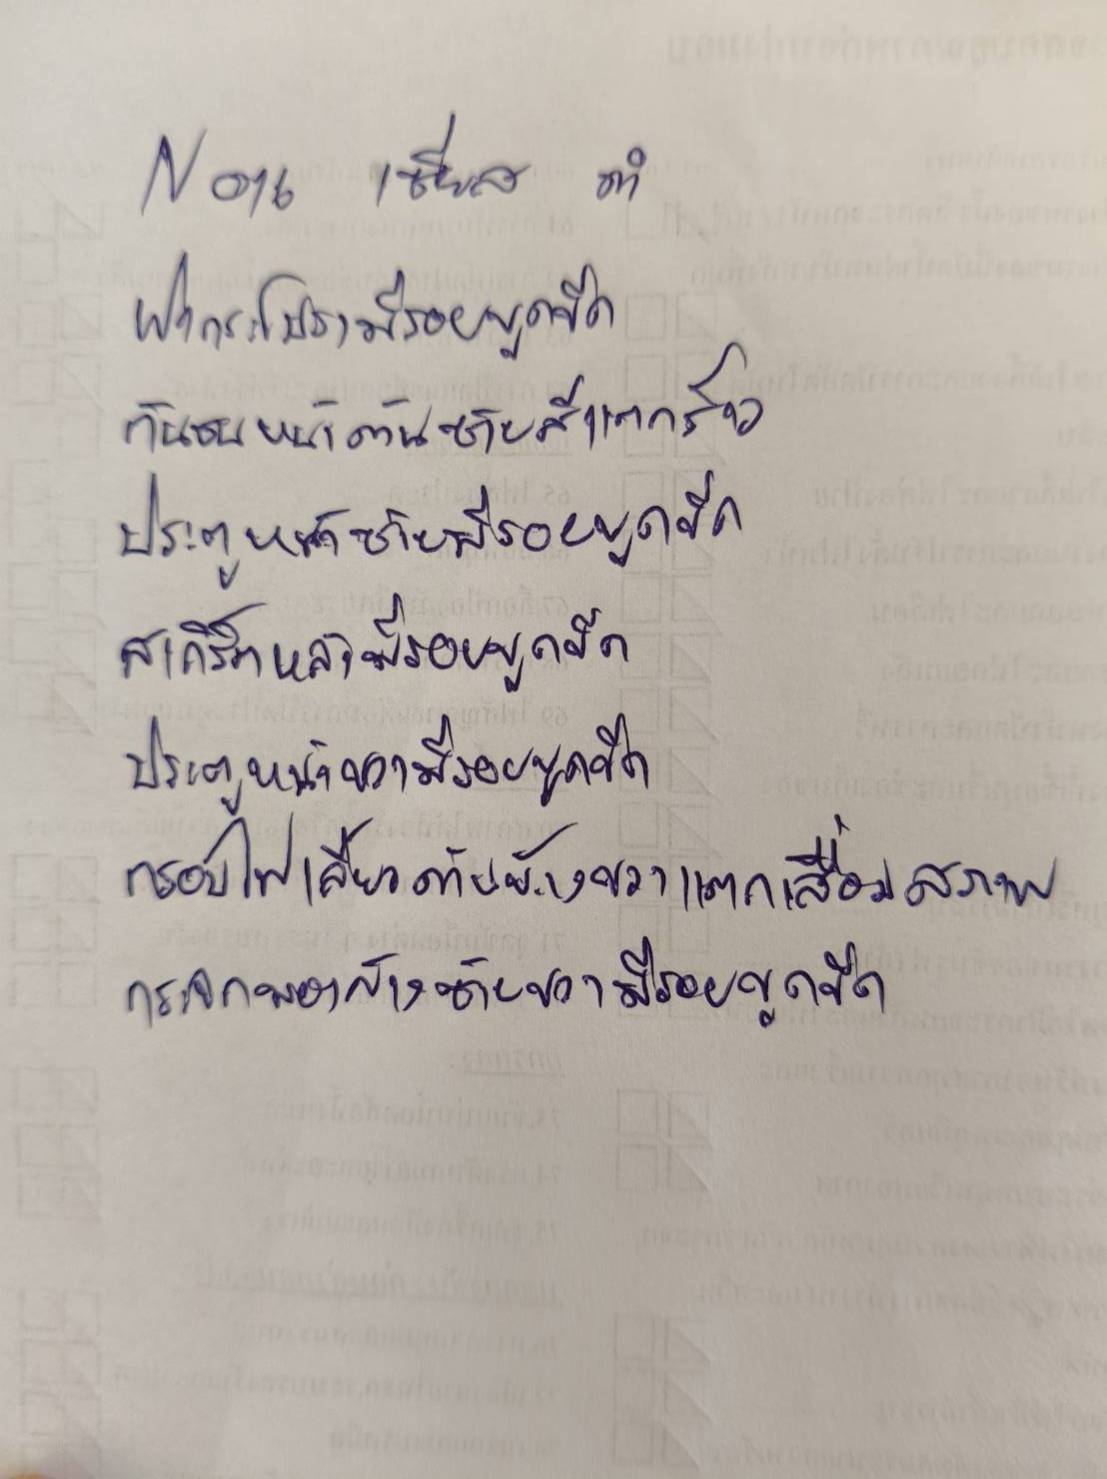 N016 เซียส ดำ
ฝากระโปรงมีรอยขูดขีด
กันชนหน้าด้านซ้ายสีแตกร้าว
ประตูหน้าซ้ายมีรอยขูดขีด
สเกิร์ตหลังมีรอยขูดขีด
ประตูหน้าขวามีรอยขูดขีด
กรอบไฟเลี้ยวด้ายข้างขวาแตกเสื่อมสภาพ
กระจกมองข้างซ้ายขวามีรอยขูดขีด